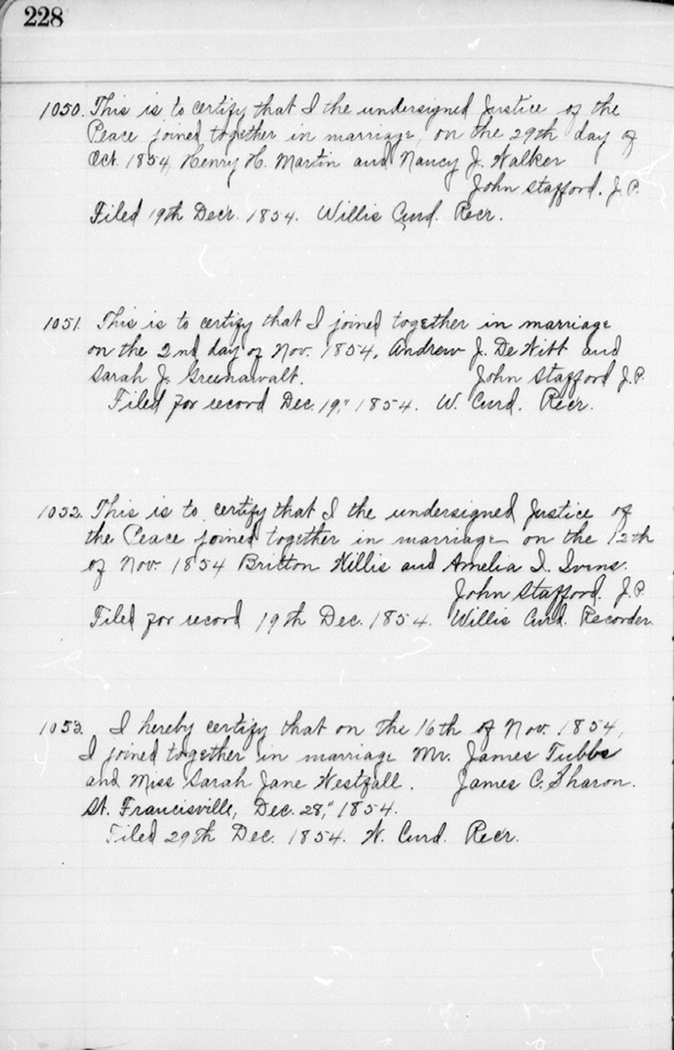 228
1050. This is to certify that I the undersigned Justice of the
Peace joined together in marriage, on the 29th day of
Oct. 1854, Henry H. Martin and Nancy J. Walker
John Stafford. J.P.
Filed 19th Decr. 1854. Willis Curd. Recr.
1051. This is to certify that I joined together in marriage
on the 2nd day of Nov. 1854, Andrew J. De Witt and
Sarah J. Greenawalt. John Stafford J.P.
Filed for record Dec. 19," 1854. W. Curd. Recr.
1052. This is to certify that I the undersigned Justice of
the Peace joined together in marriage on the 12th
of Nov. 1854 Britton Willis and Amelia I. Ivens.
John Stafford. J.P.
Filed for record 19th Dec. 1854. Willis Curd. Recorder.
1053. I hereby certify that on the 16th of Nov. 1854,
I joined together in marriage Mr. James Tubbs
and Miss Sarah Jane Westfall. James C. Sharon.
St. Francisville, Dec. 28," 1854.
Filed 29th Dec. 1854. W. Curd. Recr.